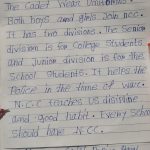 The Cadet Wears Uniforms.
Both boys and girls Join NCC.
It has two divisions. The Senior
division is for College Students
and Junior division is for the
School Students. It helps the
Police in the time of war.
N.C.C teaches us disipline
and good habit. Every School
should have NCC.